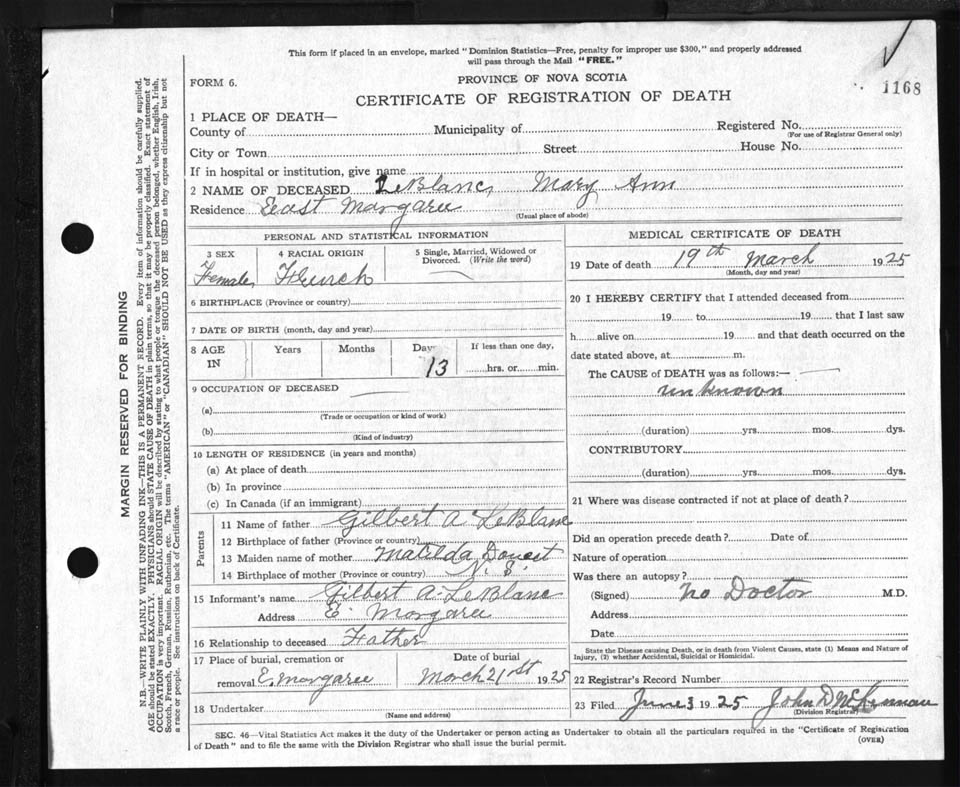 This form if placed in an envelope, marked "Dominion Statistics—Free, penalty for improper use $300," and properly addressed
will pass through the Mail "FREE."
FORM 6.
PROVINCE OF NOVA SCOTIA
1168
CERTIFICATE OF REGISTRATION OF DEATH
1 PLACE OF DEATH—
County of Municipality of Registered No.
(For use of Registrar General only)
City or Town Street House No.
If in hospital or institution, give name
2 NAME OF DECEASED LeBlanc, Mary Ann
Residence East Margaree
(Usual place of abode)
PERSONAL AND STATISTICAL INFORMATION
3 SEX 4 RACIAL ORIGIN 5 Single, Married, Widowed or
Divorced. (Write the word)
Female, French
6 BIRTHPLACE (Province or country)
7 DATE OF BIRTH (month, day and year)
8 AGE Years Months Days If less than one day,
IN 13 hrs. or min.
9 OCCUPATION OF DECEASED
(a)
(Trade or occupation or kind of work)
(b)
(Kind of industry)
10 LENGTH OF RESIDENCE (in years and months)
(a) At place of death
(b) In province
(c) In Canada (if an immigrant)
Parents
11 Name of father Gilbert A LeBlanc
12 Birthplace of father (Province or country)
13 Maiden name of mother Matilda Doucet
14 Birthplace of mother (Province or country) N. S.
15 Informant's name Gilbert A. LeBlanc
Address E. Margaree
16 Relationship to deceased Father
17 Place of burial, cremation or Date of burial
removal E. Margaree March 21st 1925
18 Undertaker
(Name and address)
MEDICAL CERTIFICATE OF DEATH
19 Date of death 19th March 1925
(Month, day and year)
20 I HEREBY CERTIFY that I attended deceased from
19 to 19 that I last saw
h alive on 19 and that death occurred on the
date stated above, at m.
The CAUSE of DEATH was as follows:—
unknown
(duration) yrs. mos. dys.
CONTRIBUTORY
(duration) yrs. mos. dys.
21 Where was disease contracted if not at place of death?
Did an operation precede death? Date of
Nature of operation
Was there an autopsy?
(Signed) No Doctor M.D.
Address
Date
State the Disease causing Death, or in death from Violent Causes, state (1) Means and Nature of
Injury, (2) whether Accidental, Suicidal or Homicidal.
22 Registrar's Record Number
23 Filed June 3 1925 John D McLennan
(Division Registrar)
SEC. 46—Vital Statistics Act makes it the duty of the Undertaker or person acting as Undertaker to obtain all the particulars required in the "Certificate of Registration
of Death" and to file the same with the Division Registrar who shall issue the burial permit.
(OVER)
MARGIN RESERVED FOR BINDING
N.B.—WRITE PLAINLY WITH UNFADING INK—THIS IS A PERMANENT RECORD. Every item of information should be carefully supplied.
AGE should be stated EXACTLY. PHYSICIANS should STATE CAUSE OF DEATH in plain terms, so that it may be properly classified. Exact statement of
OCCUPATION is very important. RACIAL ORIGIN will be described by stating to what people or tongue the deceased person belonged, whether English, Irish,
Scotch, French, German, Russian, Ruthenian, etc. The terms "AMERICAN" or "CANADIAN" SHOULD NOT BE USED as they express citizenship but not
a race or people. See instructions on back of Certificate.